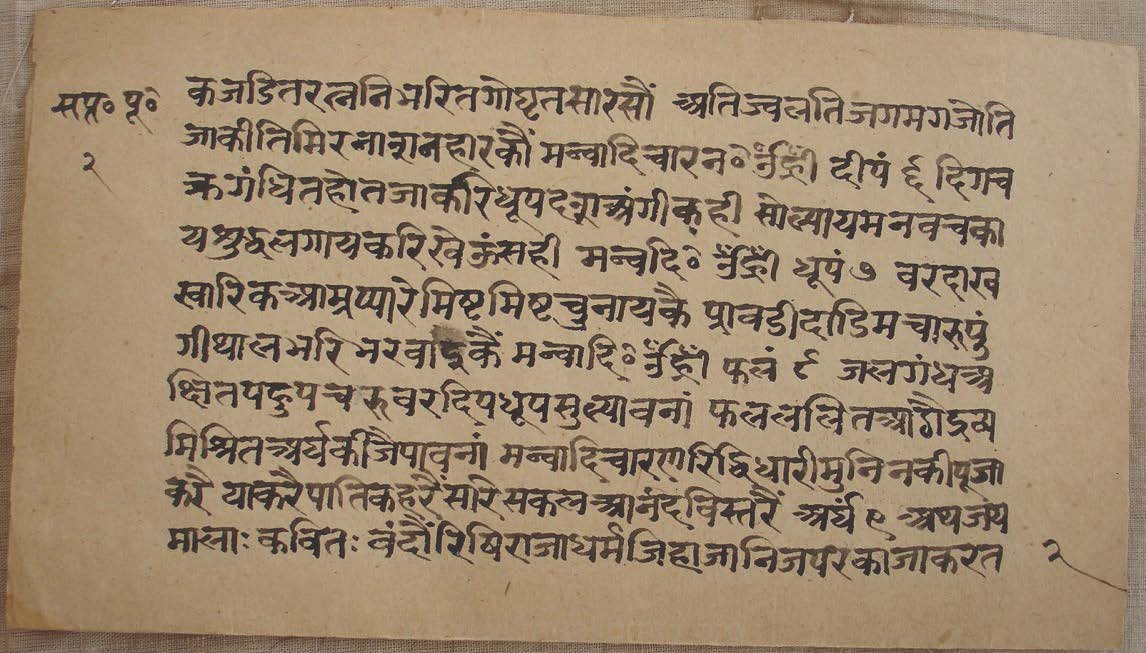 सप्र॰ पू॰
२
कजडितरत्ननिभरितगोघृतसारसौं अतिज्वलतिजगमगजोति
जाकीतिमिरनाशनहारकौं मन्वादिचारन॰ ॐह्रीं दीपं ६ दिगच
क्रगंधितहोतजाकरिधूपदशअंगीकही सोल्यायमनवचका
यशुद्धलगायकरिखेऊंसही मन्वदि॰ ॐह्रीं धूपं ७ वरदाख
खारिकआम्रप्यारेमिष्टमिष्टचुनायकै द्रावडीदाडिमचारुपुं
गीथालभरिभरवादुकैं मन्वादि॰ ॐह्रीं फलं ८ जलगंधअ
क्षितपहुपचरुवरदिपधूपसुल्यावनां फलललितआठौद्रव्य
मिश्रितअर्घकीजैपावनां मन्वादिचारणरिद्धिधारीमुनिनकीपूजा
करै याकरैपातिकहरैंसारिसकलआनंदविस्तरैं अर्घं ९ अथजय
मालाः कवितः वंदौंरिषिराजाधर्मजिहाजानिजपरकाजाकरत
२